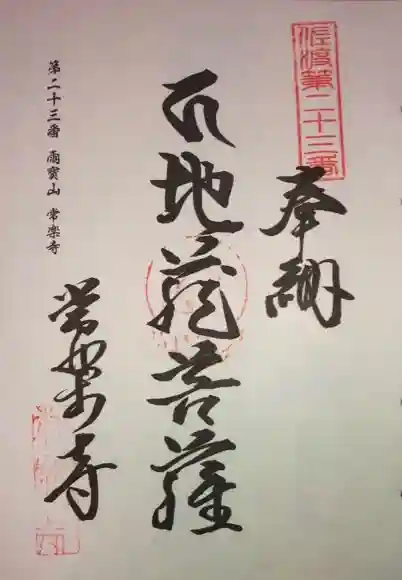 佐渡第二十三番
奉納
石地蔵菩薩
常楽寺
第二十三番 雨寳山 常楽寺